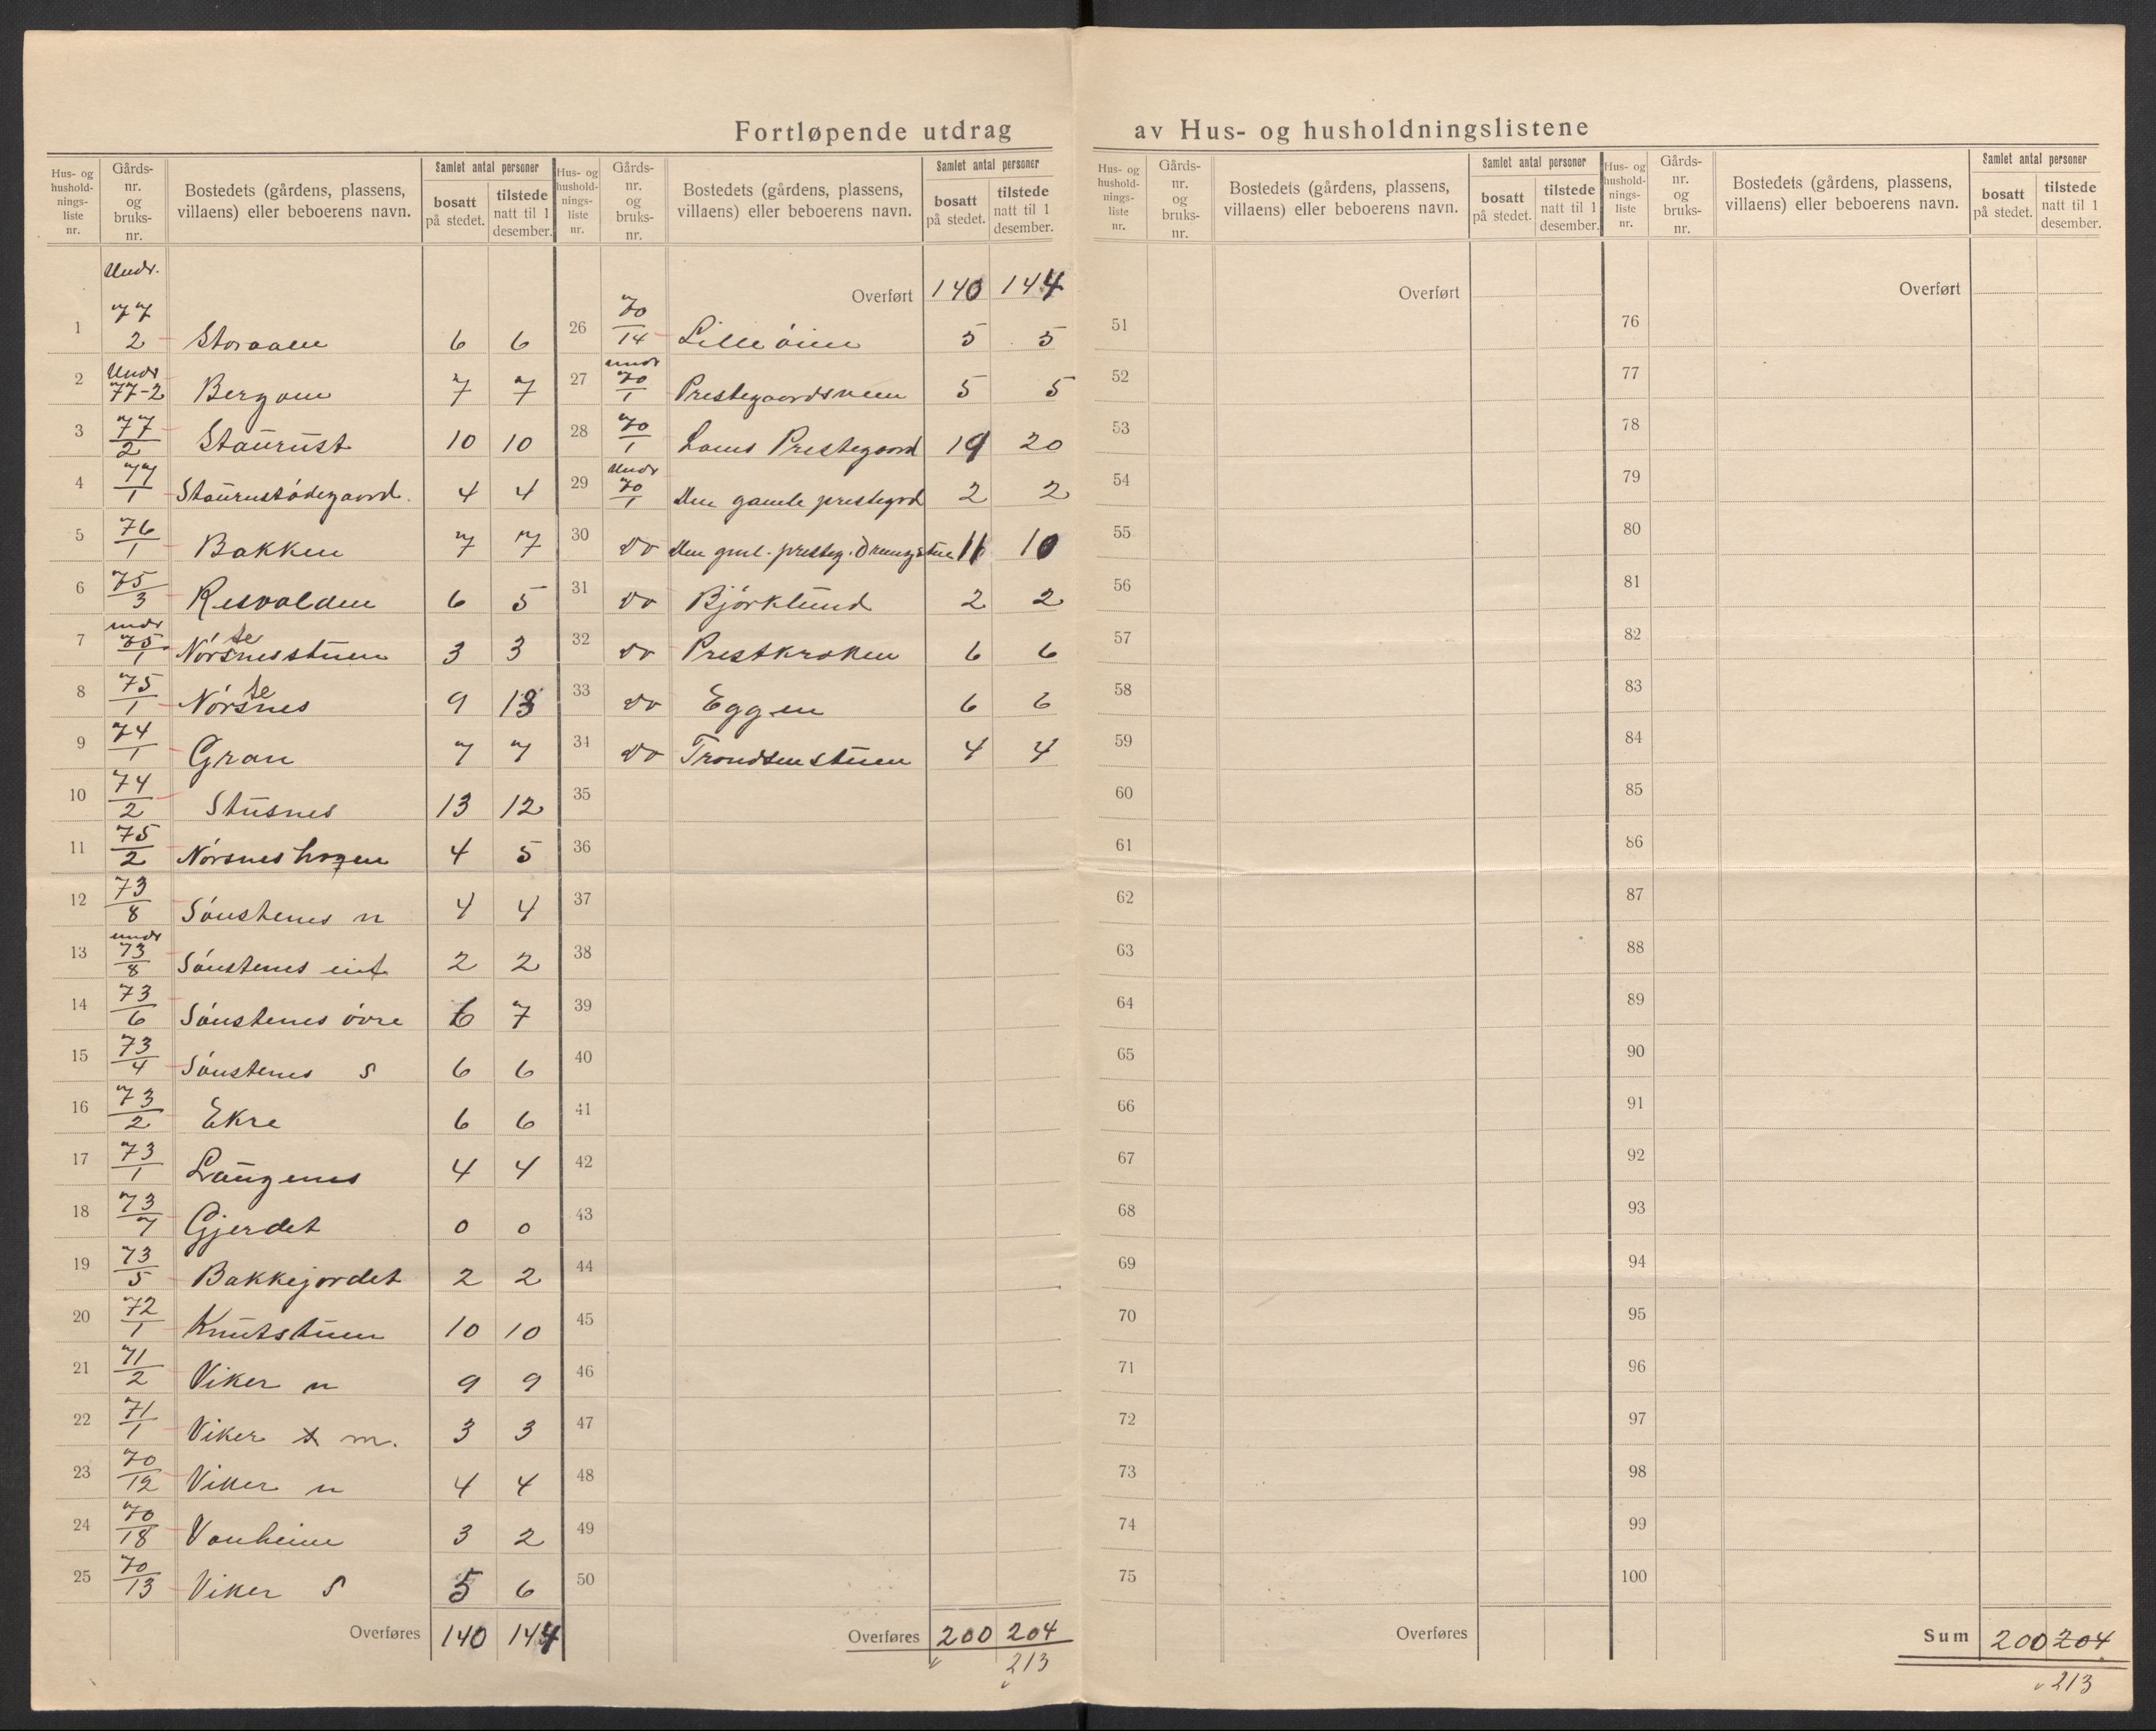 Fortløpende utdrag av Hus- og husholdningslistene
Hus- og hushold- nings- liste nr. | Gårds- nr. og bruks- nr. | Bostedets (gårdens, plassens, villaens) eller beboerens navn. | Samlet antal personer | bosatt på stedet. | tilstede natt til 1 desember.
1 Undr. 77/2 Storaaen 6 6
2 Undr 77-2 Bergom 7 7
3 77/2 Staurust 10 10
4 77/1 Staurustødegaard. 4 4
5 76/1 Bakken 7 7
6 75/3 Resvolden 6 5
7 undr 75/1 Nørstenesstuen 3 3
8 75/1 Nørstenes 9 13
9 74/1 Gran 7 7
10 74/2 Stusnes 13 12
11 75/2 Nørsneshagen 4 5
12 73/8 Sønstenes n 4 4
13 undr 73/8 Sønstenes 2 2
14 73/6 Sønstenes øvre 6 7
15 73/4 Sønstenes S 6 6
16 73/2 Ekre 6 6
17 73/1 Laugenes 4 4
18 73/7 Gjerdet 0 0
19 73/5 Bakkejordet 2 2
20 72/1 Knutstuen 10 10
21 71/2 Viker n 9 9
22 71/1 Viker m. 3 3
23 70/12 Viker n 4 4
24 70/18 Vonheim 3 2
25 70/13 Viker S 5 6
Overføres 140 144
Hus- og hushold- nings- liste nr. | Gårds- nr. og bruks- nr. | Bostedets (gårdens, plassens, villaens) eller beboerens navn. | Samlet antal personer | bosatt på stedet. | tilstede natt til 1 desember.
Overført 140 144
26 70/14 Lilleøien 5 5
27 undr 70/1 Prestegaardsveen 5 5
28 70/1 Loms Prestegaard 19 20
29 Undr 70/1 Den gamle prestegrd 2 2
30 do Den gml. presteg. Drengstue 11 10
31 do Bjørklund 2 2
32 do Prestkroken 6 6
33 do Eggen 6 6
34 do Trondsenstuen 4 4
35
36
37
38
39
40
41
42
43
44
45
46
47
48
49
50
Overføres 200 204
213
Hus- og hushold- nings- liste nr. | Gårds- nr. og bruks- nr. | Bostedets (gårdens, plassens, villaens) eller beboerens navn. | Samlet antal personer | bosatt på stedet. | tilstede natt til 1 desember.
Overført
51
52
53
54
55
56
57
58
59
60
61
62
63
64
65
66
67
68
69
70
71
72
73
74
75
Overføres
Hus- og hushold- nings- liste nr. | Gårds- nr. og bruks- nr. | Bostedets (gårdens, plassens, villaens) eller beboerens navn. | Samlet antal personer | bosatt på stedet. | tilstede natt til 1 desember.
Overført
76
77
78
79
80
81
82
83
84
85
86
87
88
89
90
91
92
93
94
95
96
97
98
99
100
Sum 200 204
213